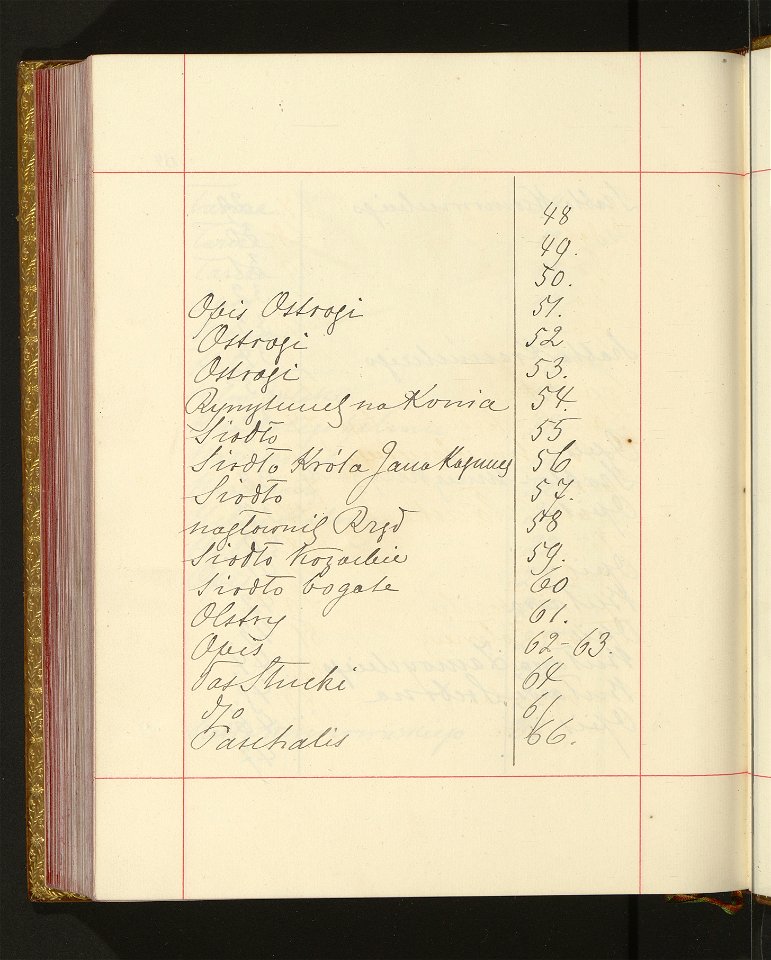 48
49.
50.
Opis Ostrogi 51.
Ostrogi 52
Ostrogi 53.
na Konia 54.
Siodło 55
Siodło Króla Jana 56
Siodło 57.
nagłownik Rzęd 58
Siodło Kozackie 59.
Siodło bogate 60
Olstry 61.
Opis 62-63.
Pas Słucki 64
d/o
Paschalis 66.